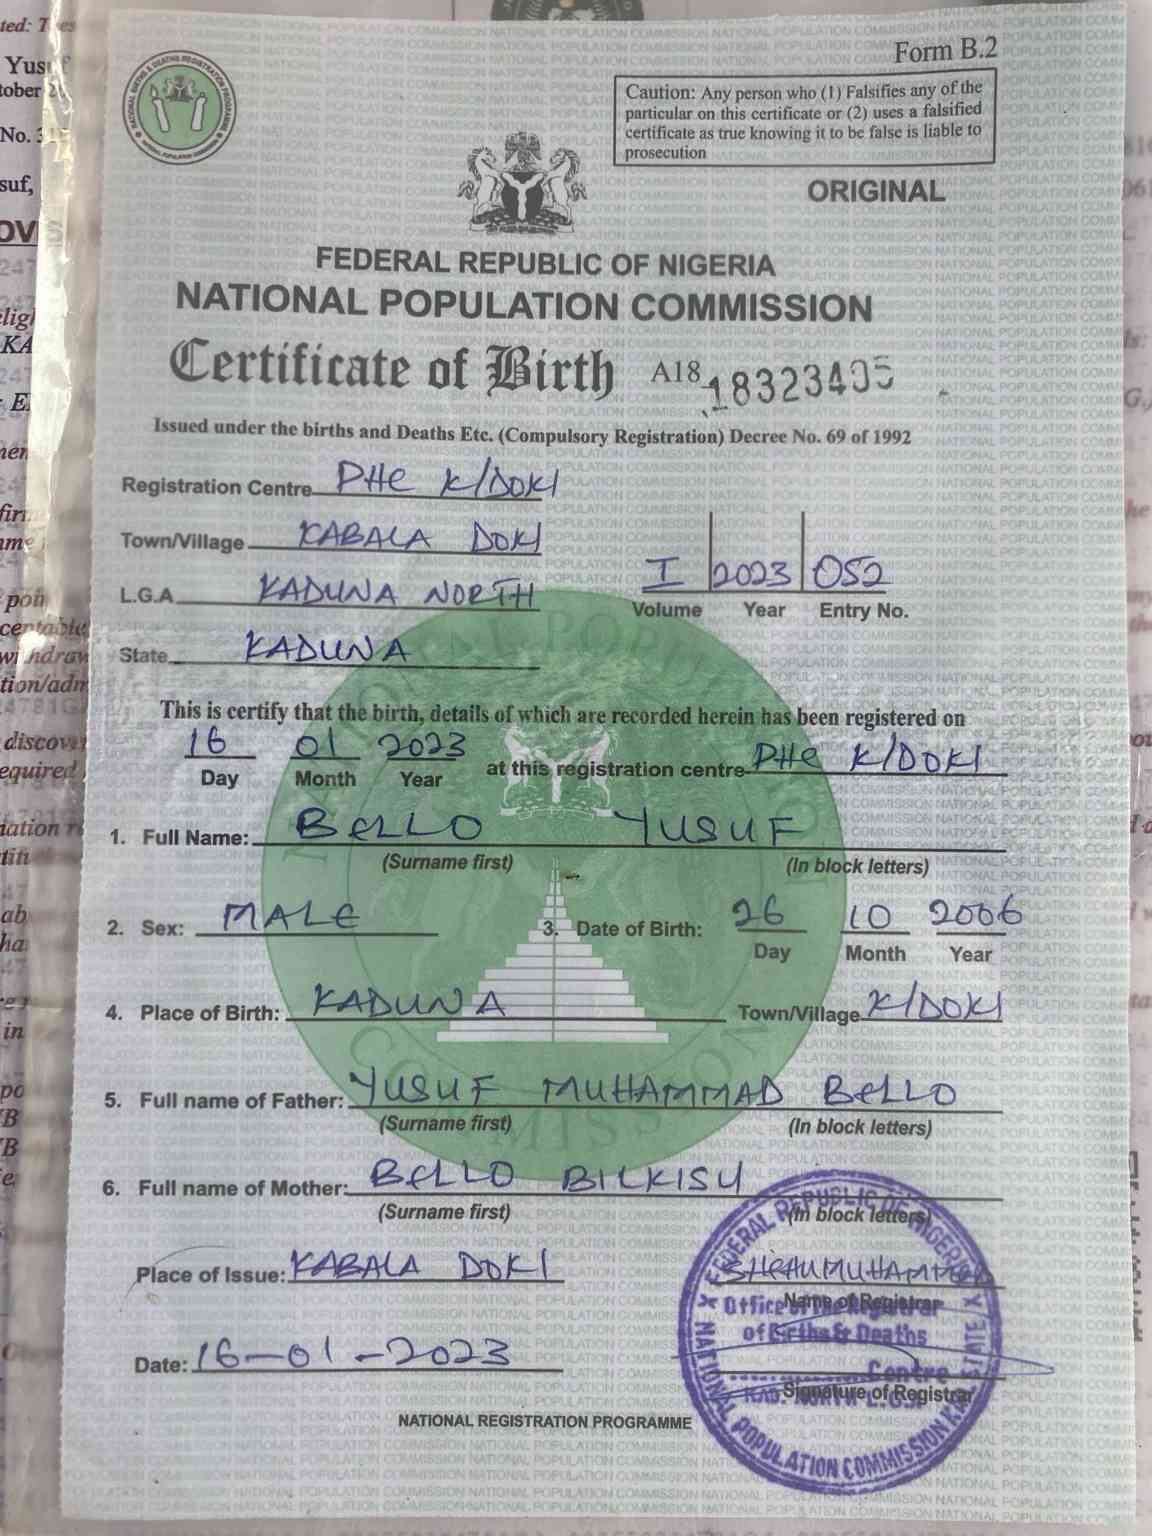 Form B.2
Caution: Any person who (1) Falsifies any of the
particular on this certificate or (2) uses a falsified
certificate as true knowing it to be false is liable to
prosecution
ORIGINAL
NATIONAL BIRTHS & DEATHS REGISTRATION PROGRAMME
NATIONAL POPULATION COMMISSION
FEDERAL REPUBLIC OF NIGERIA
NATIONAL POPULATION COMMISSION
Certificate of Birth A18 18323495
Issued under the births and Deaths Etc. (Compulsory Registration) Decree No. 69 of 1992
Registration Centre PHC K/DOKI
Town/Village KABALA DOKI
L.G.A KADUNA NORTH
I 2023 052
Volume Year Entry No.
State KADUNA
This is certify that the birth, details of which are recorded herein has been registered on
16 01 2023 at this registration centre PHC K/DOKI
Day Month Year
1. Full Name: BELLO YUSUF
(Surname first) (In block letters)
2. Sex: MALE 3. Date of Birth: 26 10 2006
Day Month Year
4. Place of Birth: KADUNA Town/Village K/DOKI
5. Full name of Father: YUSUF MUHAMMAD BELLO
(Surname first) (In block letters)
6. Full name of Mother: BELLO BILKISU
(Surname first) (In block letters)
Place of Issue: KABALA DOKI
Name of Registrar
Date: 16-01-2023
Signature of Registrar
NATIONAL REGISTRATION PROGRAMME
FEDERAL REPUBLIC OF NIGERIA
Office of the Registrar
of Births & Deaths
Centre
KAD. NORTH L.G.A
NATIONAL POPULATION COMMISSION KAD STATE